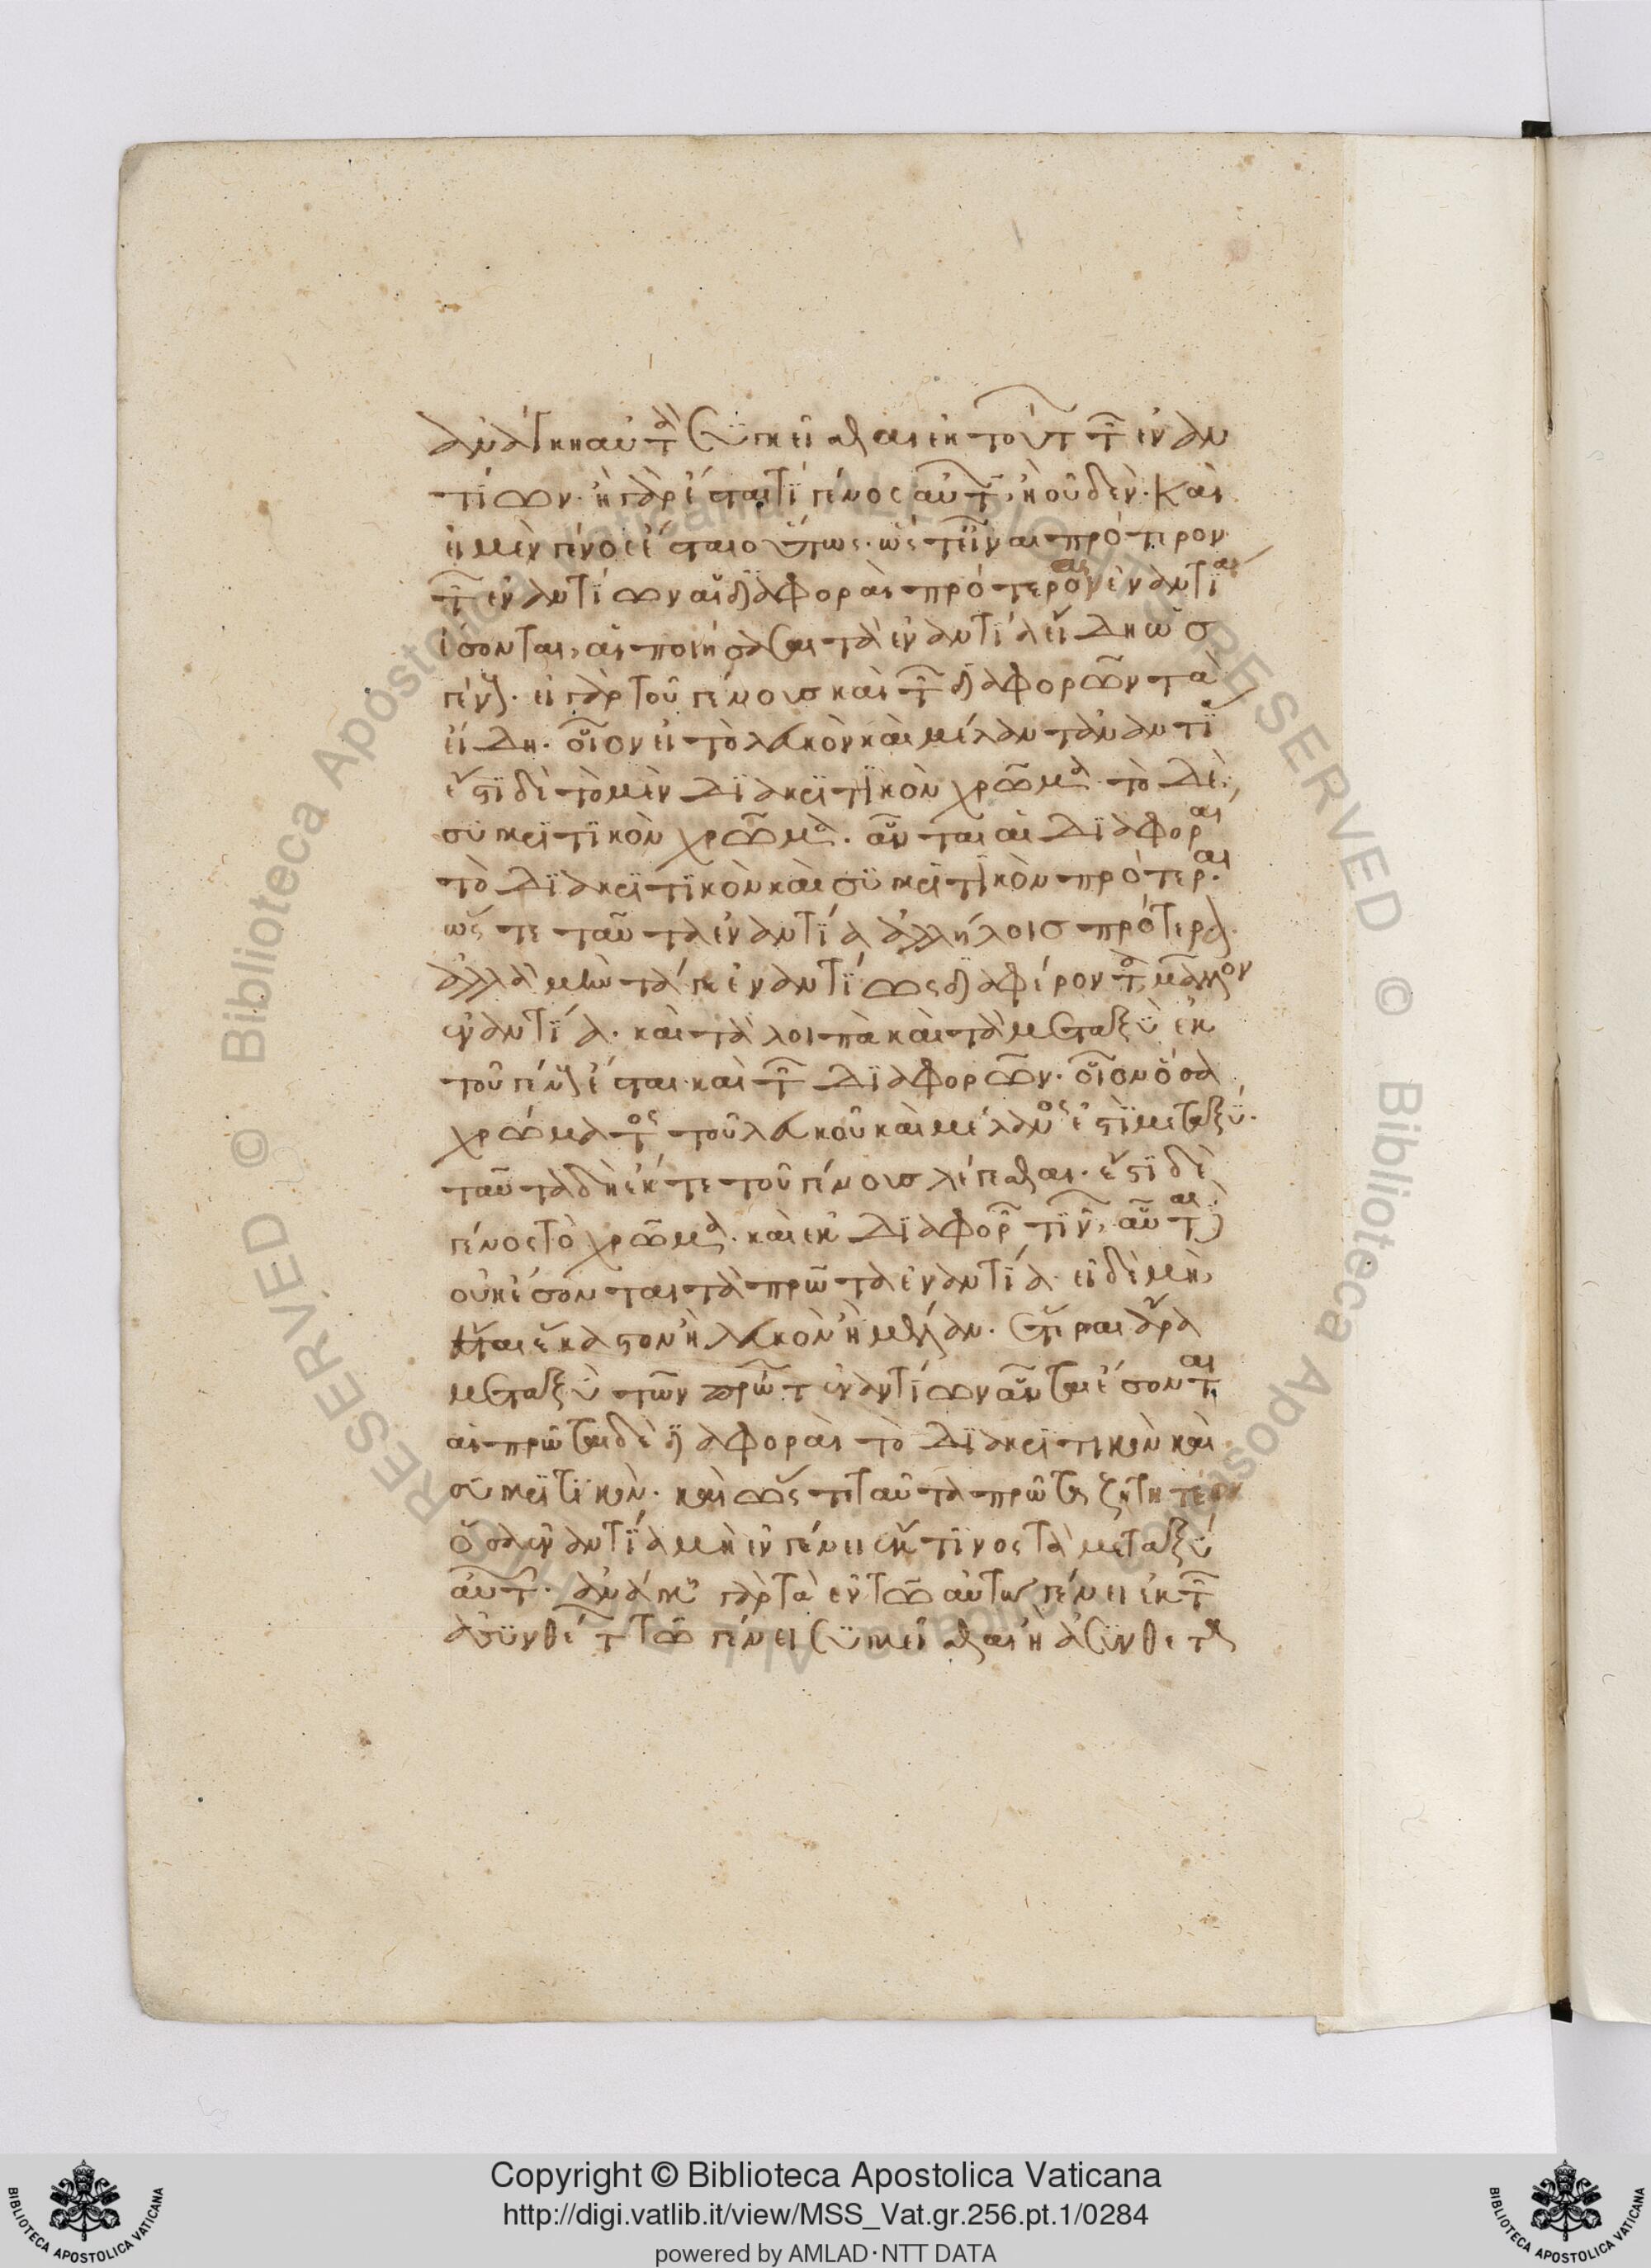 ἀνάγκη αὐτὰ συγκεῖσθαι ἐκ τούτων τῶν ἐναν
τίων. ἢ γὰρ ἔσται τι γένος αὐτῶν, ἢ οὐδέν. καὶ
εἰ μὲν γένος ἔσται οὕτως. ὥστ' εἶναι πρότερον
τῶν ἐναντίων αἱ διαφοραὶ πρότεραι ἐναντίαι
ἔσονται, αἱ ποιήσασαι τὰ ἐναντία εἴδη ὡς
γένους. ἐκ γὰρ τοῦ γένους καὶ τῶν διαφορῶν τὰ
εἴδη. οἷον εἰ τὸ λευκὸν καὶ μέλαν τἀναντία
ἔστι δὲ τὸ μὲν διακριτικὸν χρῶμα. τὸ δὲ,
συγκριτικὸν χρῶμα. αὗται αἱ διαφοραὶ
τὸ διακριτικὸν καὶ συγκριτικὸν πρότεραι.
ὥστε ταῦτα ἐναντία ἀλλήλοις πρότερα.
ἀλλὰ μὴν τά γε ἐναντίως διαφέροντα μᾶλλον
ἐναντία. καὶ τὰ λοιπὰ καὶ τὰ μεταξὺ ἐκ
τοῦ γένους ἔσται καὶ τῶν διαφορῶν. οἷον ὅσα
χρώματος τοῦ λευκοῦ καὶ μέλανός ἐστι μεταξύ.
ταῦτα δὴ ἔκ τε τοῦ γένους λέγεσθαι. ἔστι δὲ
γένος τὸ χρῶμα. καὶ ἐκ διαφορῶν τινῶν, αὗται δὲ
οὐκ ἔσονται τὰ πρῶτα ἐναντία. εἰ δὲ μὴ,
ἔσται ἕκαστον ἢ λευκὸν ἢ μέλαν. ἕτεραι ἄρα
μεταξὺ τῶν πρώτων ἐναντίων αὗται ἔσονται.
αἱ πρῶται δὲ διαφοραὶ τὸ διακριτικὸν καὶ
συγκριτικόν. καὶ ὥστε ταῦτα πρῶτα ζητητέον
ὅσα ἐναντία μὴ ἐν γένει ἐκ τίνος τὰ μεταξύ
αὐτῶν. ἀνάγκη γὰρ τὰ ἐν τῷ αὐτῷ γένει ἐκ τῶν
ἀσυνθέτων τῷ γένει συγκεῖσθαι ἢ ἀσύνθετα
Copyright © Biblioteca Apostolica Vaticana
http://digi.vatlib.it/view/MSS_Vat.gr.256.pt.1/0284
powered by AMLAD·NTT DATA